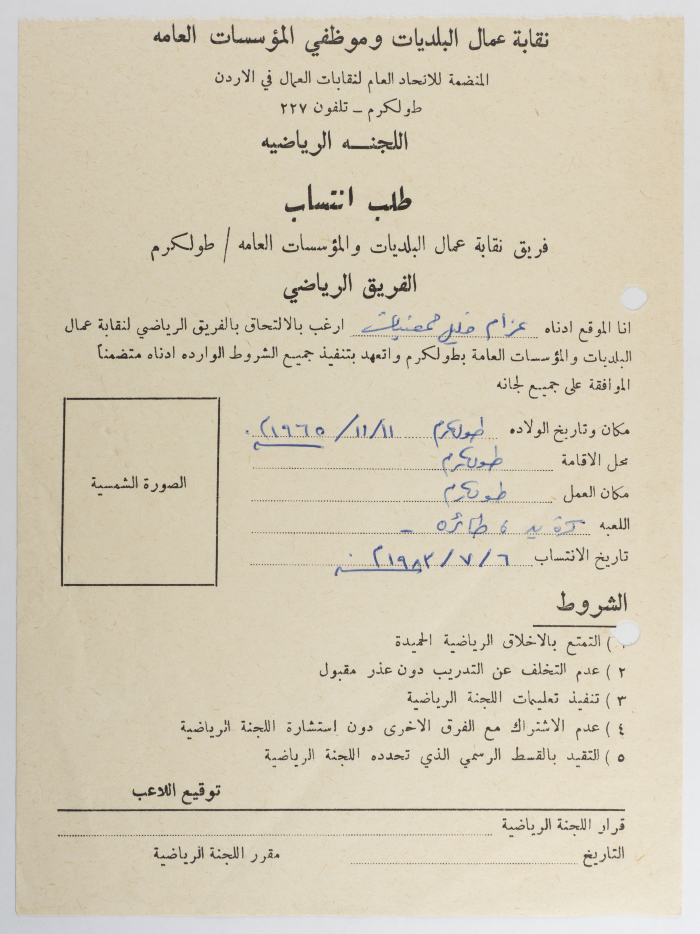 نقابة عمال البلديات وموظفي المؤسسات العامه
المنضمة للاتحاد العام لنقابات العمال في الاردن
طولكرم – تلفون ٢٢٧
اللجنـــه الرياضيه
طلب انتساب
فريق نقابة عمال البلديات والمؤسسات العامه / طولكرم
الفريق الرياضي
انا الموقع ادناه عزام خليل ارغب بالالتحاق بالفريق الرياضي لنقابة عمال
البلديات والمؤسسات العامة بطولكرم واتعهد بتنفيذ جميع الشروط الوارده ادناه متضمناً
الموافقة على جميع لجانه
مكان وتاريخ الولاده طولكرم ١١/١١/ ١٩٦٥م
محل الاقامة طولكرم
الصورة الشمسية
مكان العمل طولكرم
اللعبه كرة يد ، طائره –
تاريخ الانتساب ٦ / ٧ / ١٩٨٣م
الشروط
١ ) التمتع بالاخلاق الرياضية الحميدة
٢ ) عدم التخلف عن التدريب دون عذر مقبول
٣ ) تنفيذ تعليمات اللجنة الرياضية
٤ ) عدم الاشتراك مع الفرق الاخرى دون إستشارة اللجنة الرياضية
٥ ) التقيد بالقسط الرسمي الذي تحدده اللجنة الرياضية
توقيع اللاعب
قرار اللجنة الرياضية
التاريخ مقرر اللجنة الرياضية